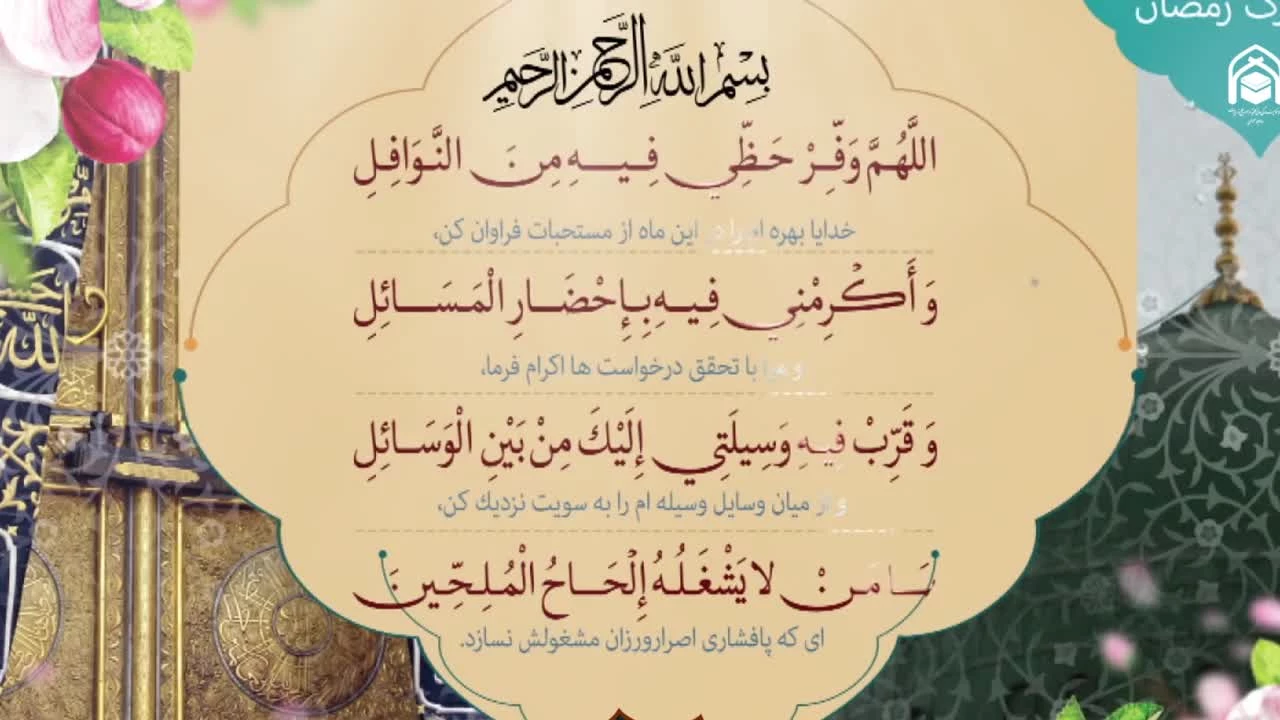 رک رمضان
بِسْمِ اللَّهِ الرَّحْمَنِ الرَّحِيمِ
اللَّهُمَّ وَفِّرْ حَظِّي فِيهِ مِنَ النَّوَافِلِ
خدایا بهره ام را در این ماه از مستحبات فراوان کن،
وَ أَكْرِمْنِي فِيهِ بِإِحْضَارِ الْمَسَائِلِ
و مرا با تحقق درخواست ها اکرام فرما،
وَ قَرِّبْ فِيهِ وَسِيلَتِي إِلَيْكَ مِنْ بَيْنِ الْوَسَائِلِ
و از میان وسایل وسیله ام را به سویت نزدیك کن،
يَا مَنْ لا يَشْغَلُهُ إِلْحَاحُ الْمُلِحِّينَ
ای که پافشاری اصرارورزان مشغولش نسازد.